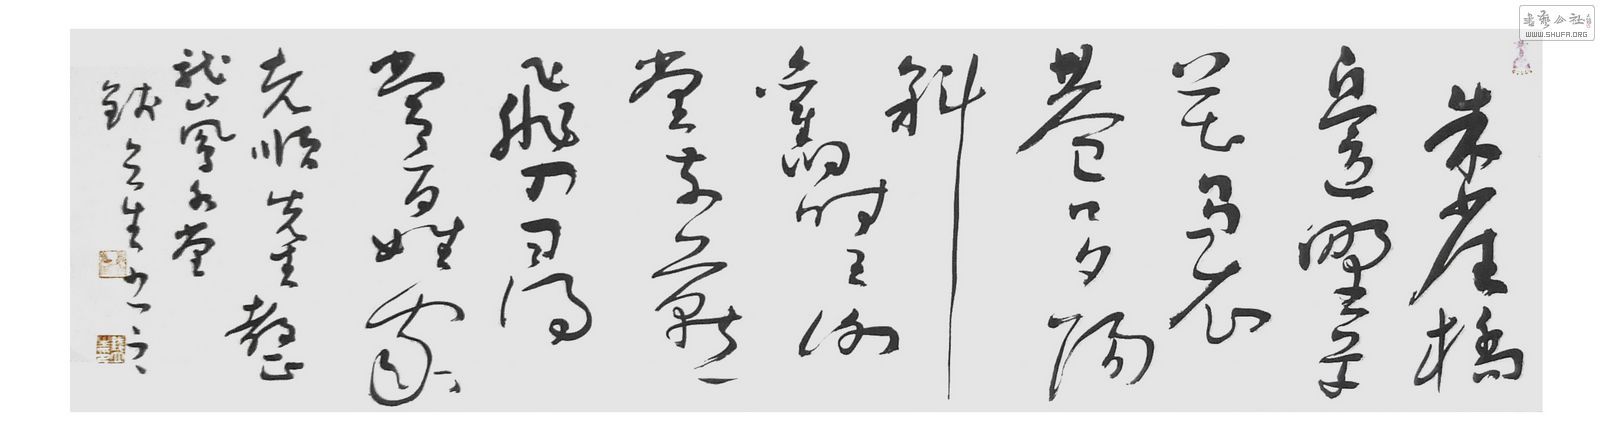 朱雀橋
邊野草
花烏衣
巷口夕陽
斜
舊時王謝
堂前燕
飛入尋
常百姓家
順先生教正
龍山鳳水堂
書藝公社
WWW.SHUFA.ORG